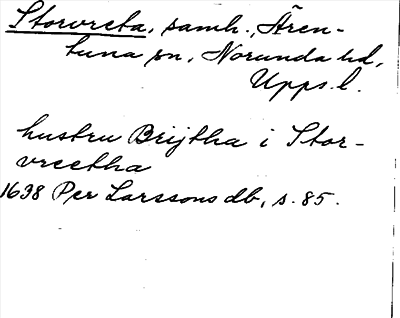 Storvreta, samh., Ären-
tuna sn, Norunda hd,
Upps. l.
hustru Brijtha i Stor-
vreetha
1638 Per Larssons db, s. 85.